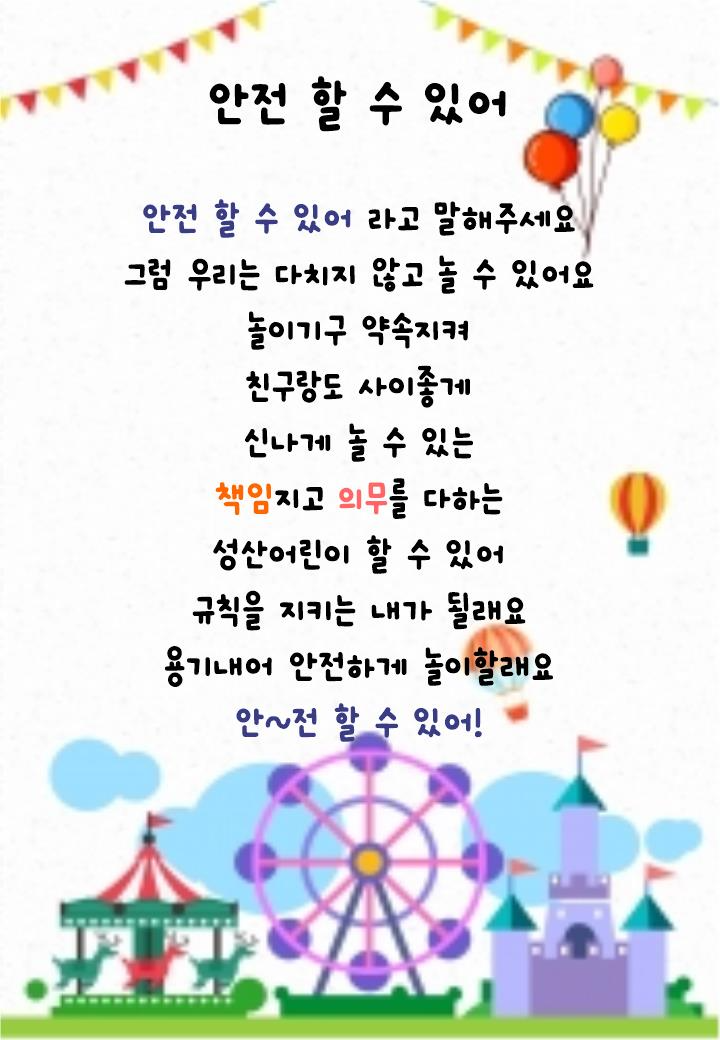 안전 할 수 있어
안전 할 수 있어 라고 말해주세요
그럼 우리는 다치지 않고 놀 수 있어요
놀이기구 약속지켜
친구랑도 사이좋게
신나게 놀 수 있는
책임지고 의무를 다하는
성산어린이 할 수 있어
규칙을 지키는 내가 될래요
용기내어 안전하게 놀이할래요
안~전 할 수 있어!